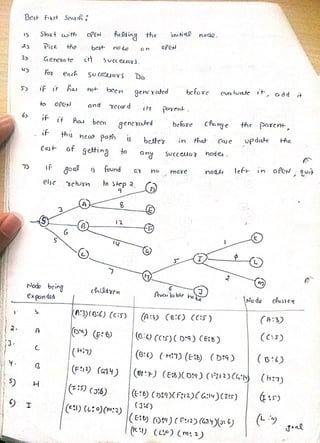 Best First Search :
1) Start with OPEN holding the initial node.
2) Pick the best node on OPEN
3) Generate its successors.
4) For each successors Do
5) if it has not been generated before evaluate it, add it
to OPEN and record its parent.
6) if it has been generated before change the parent,
if this new path is better in that case update the
cost of getting to any successor nodes.
7) If goal is found or no more nodes left in OPEN, quit
else return to step 2.
S 3 6 5
A 9 D
8 E
B 12
14 G
C 7 H
5 I 6 J
1 L 2 M
Node being expanded children Available node Node chosen
1. S (A:3) (B:6) (C:5) (A:3) (B:6) (C:5) (A:3)
2. A (D:9) (E:8) (B:6) (C:5) (D:9) (E:8) (C:5)
3. C (H:7) (B:6) (H:7) (E:8) (D:9) (B:6)
4. B (F:12) (G:14) (H:7) (E:8) (D:9) (F:12) (G:14) (H:7)
5) H (I:5) (J:6) (E:8) (D:9) (F:12) (G:14) (I:5) (J:6) (I:5)
6) I (K:1) (L:0) (M:2) (E:8) (D:9) (F:12) (G:14) (J:6)
(K:1) (L:0) (M:2) goal